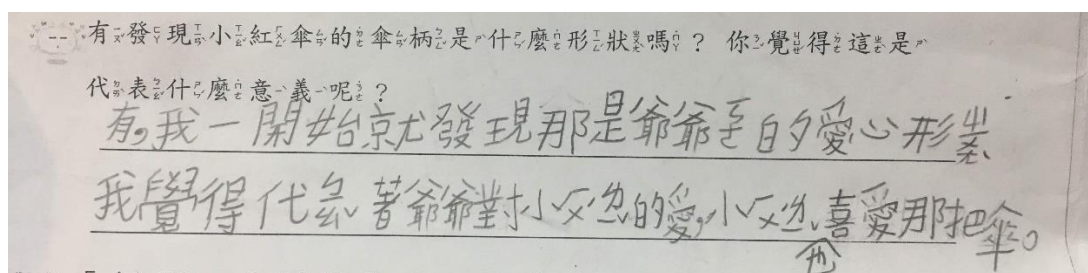 有發現小紅傘的傘柄是什麼形狀嗎？ 你覺得這是
代表什麼意義呢？
有,我一開始就發現那是爺爺的愛心形ㄓㄨㄤˋ
我覺得代著爺爺對小的愛,小也喜愛那把傘。